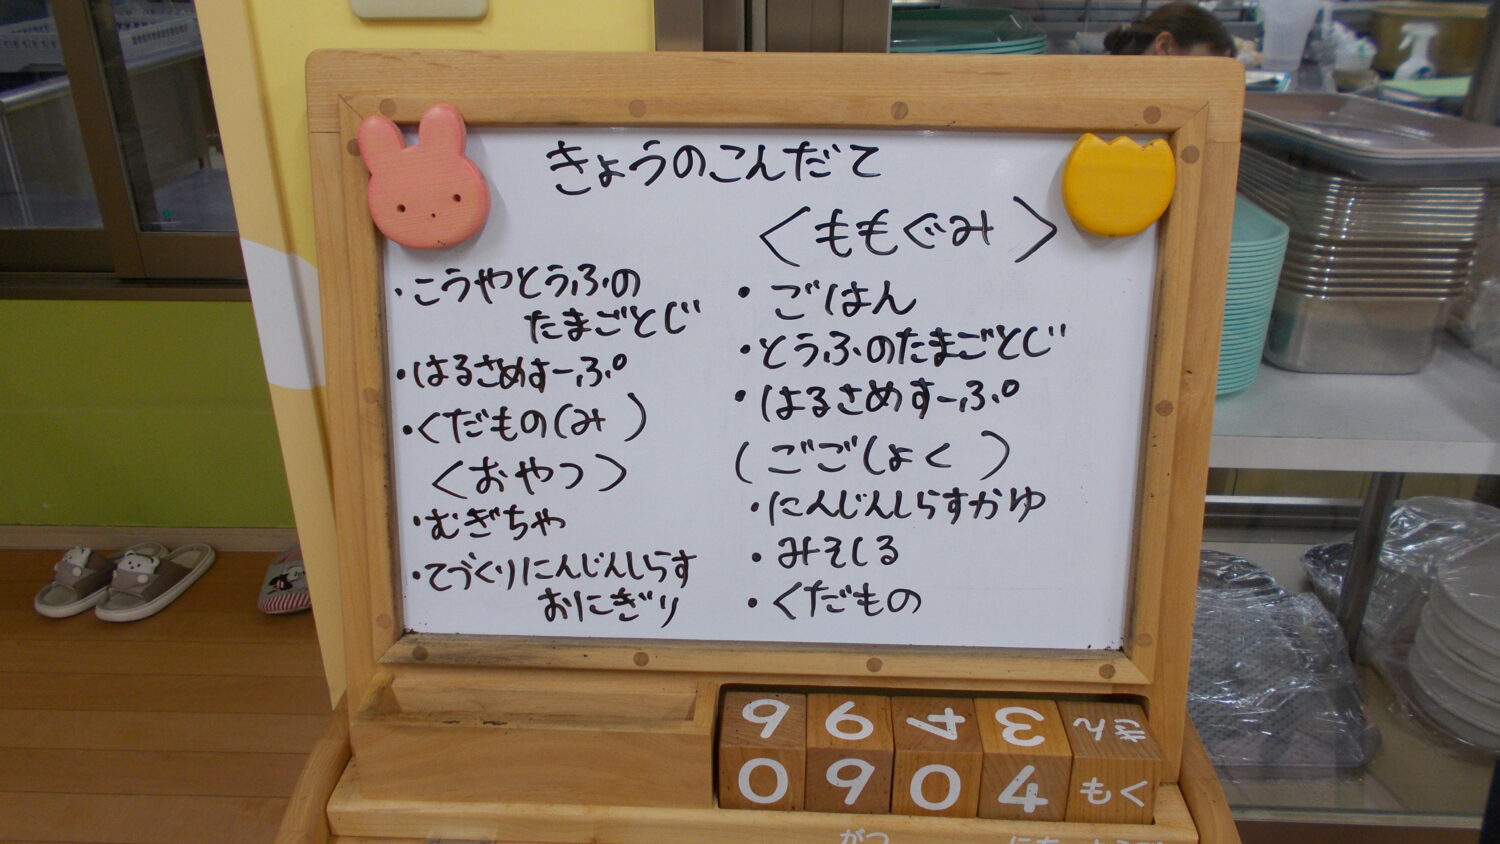 きょうのこんだて
・こうやとうふの
たまごとじ
・はるさめすーぷ
・くだもの(み )
〈おやつ〉
・むぎちゃ
・てづくりにんじんしらす
おにぎり
〈ももぐみ〉
・ごはん
・とうふのたまごとじ
・はるさめすーぷ
(ごごしょく )
・にんじんしらすかゆ
・みそしる
・くだもの
9 6 4 3 きん
0 9 0 4 もく
がつ